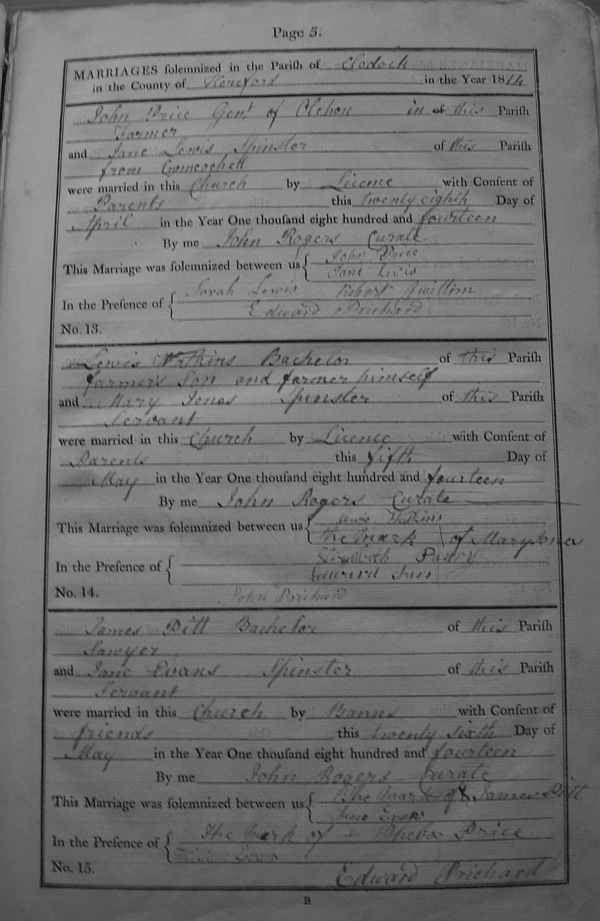 Page 5.
MARRIAGES solemnized in the Parish of Clodock
in the County of Hereford in the Year 1814
John Price Gent of Olchon in this Parish
Farmer
and Jane Lewis Spinster of this Parish
from
were married in this Church by Licence with Consent of
Parents this twenty eighth Day of
April in the Year One thousand eight hundred and fourteen
By me John Rogers Curate
This Marriage was solemnized between us John Price
Jane Lewis
In the Presence of Sarah Lewis Robert
Edward Prichard
No. 13.
Lewis Watkins Bachelor of this Parish
farmer's Son and farmer himself
and Mary Jones Spinster of this Parish
Servant
were married in this Church by Licence with Consent of
Parents this fifth Day of
May in the Year One thousand eight hundred and fourteen
By me John Rogers Curate
This Marriage was solemnized between us Lewis Watkins
The Mark of Mary Jones
In the Presence of Elizabeth Parry
Edward
No. 14. John Prichard
James Pitt Bachelor of this Parish
Sawyer
and Jane Evans Spinster of this Parish
Servant
were married in this Church by Banns with Consent of
friends this twenty sixth Day of
May in the Year One thousand eight hundred and fourteen
By me John Rogers Curate
This Marriage was solemnized between us The Mark of X James Pitt
Jane Evans
In the Presence of The Mark of + Price
No. 15. Edward Prichard
B